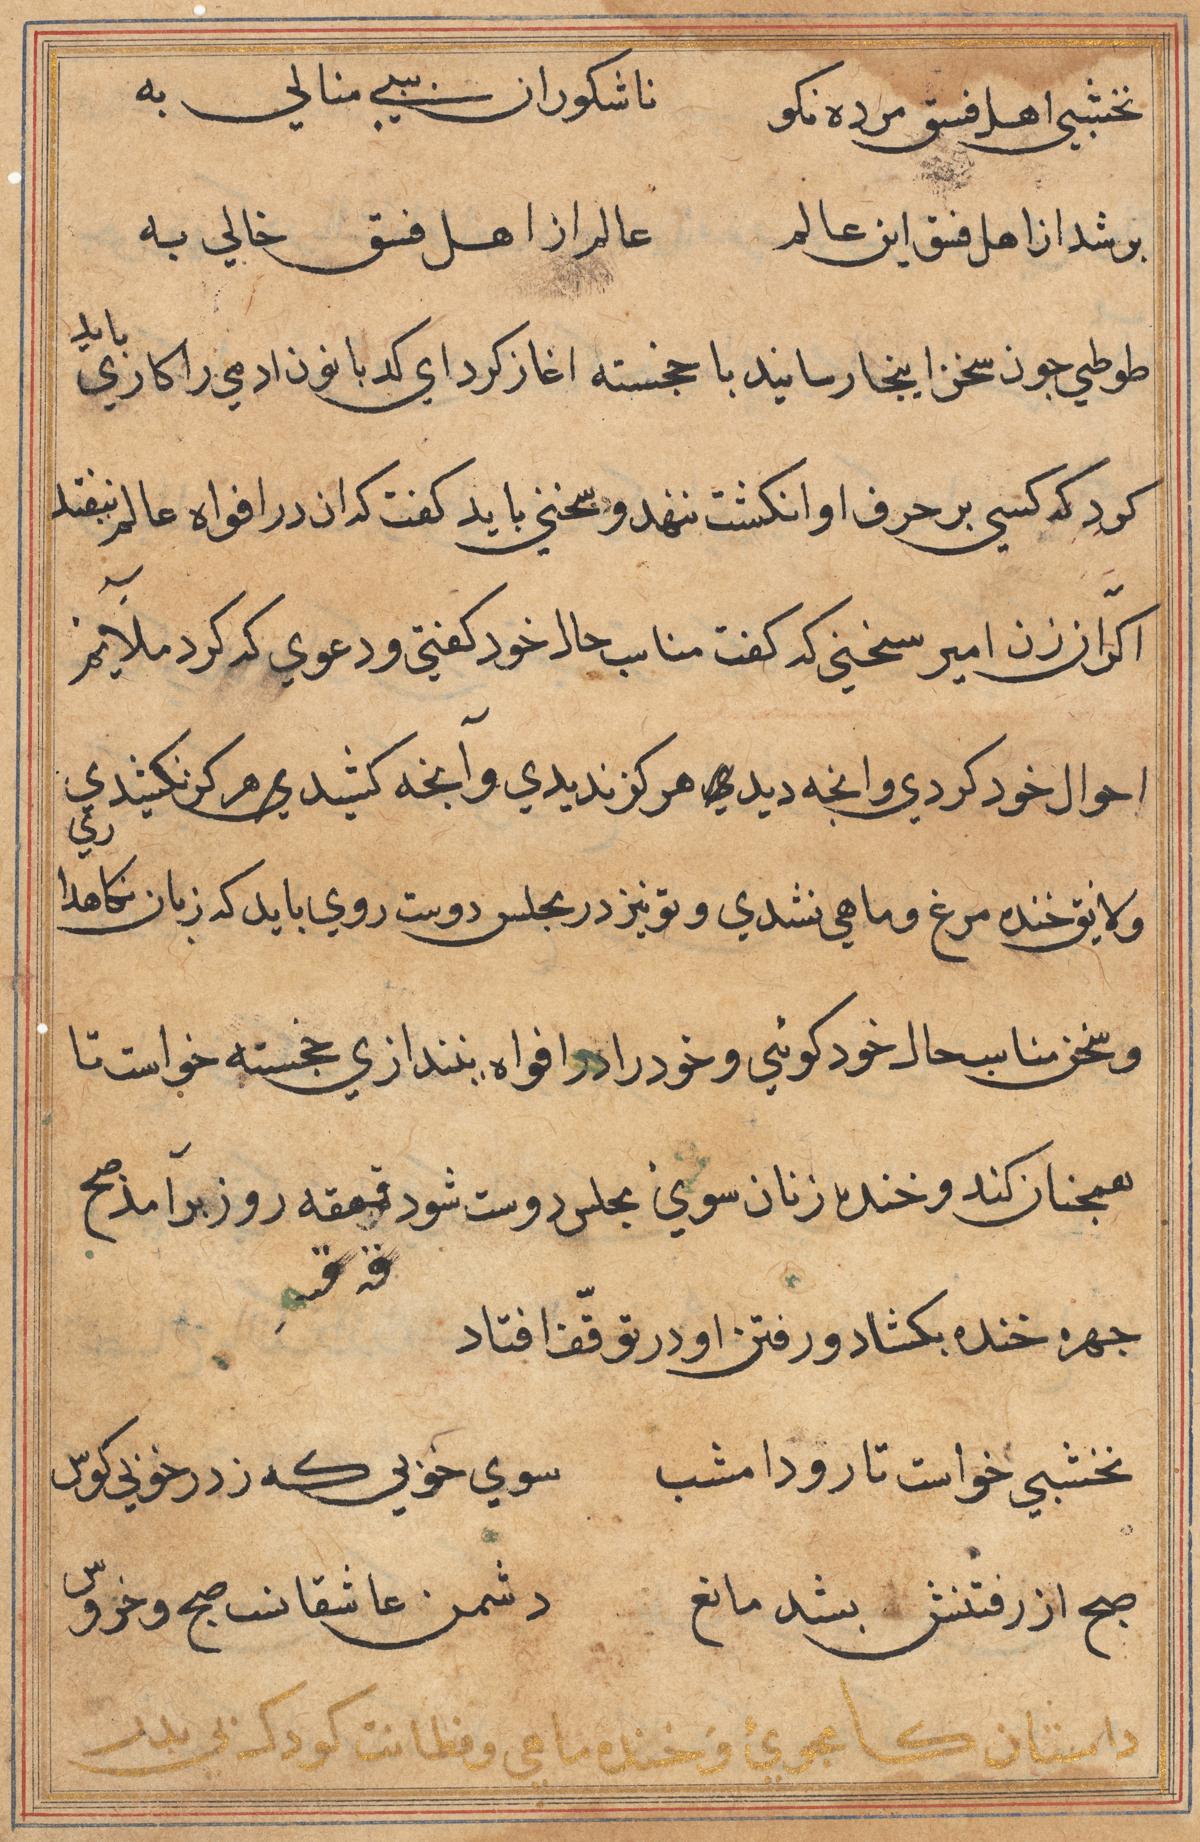 نخشبی اهل فسق مرده نکو ناشکوران بی منالی به
بر شد از اهل فسق این عالم عالم از اهل فسق خالی به
طوطی جون سخن اینجا رسانید با خجسته اغاز کرد ای کدبانو ن ادمی را کاری باید
کرد که کسی بر حرف او انکشت ننهد و سخنی باید کفت که ان در افواه عالم نیفتد
اکر ان زن امیر سخنی که کفت مناسب حال خود کفتی و دعوی که کرد ملایم
احوال خود کردی و انجه دیدی هرکز ندیدی و آنجه کشیدی هرکز نکشیدی
و لایق خنده مرغ و ماهی نشدی و تو نیز در مجلس دوست روی باید که زبان نکاهداری
و سخن مناسب حال خود کوئی و خود را در افواه نیندازی خجسته خواست تا
همجنان کند و خنده زنان سوی مجلس دوست شود قهقه روز برآمد صبح
جهره خنده بکشاد و رفتن او در توقف افتاد
نخشبی خواست تا رود امشب سوی خوبی که زد در خوبی کوس
صبح از رفتنش بشد مانع دشمن عاشقانست صبح و خروس
داستان کامجوی و خنده ماهی و فطانت کودک بی پدر